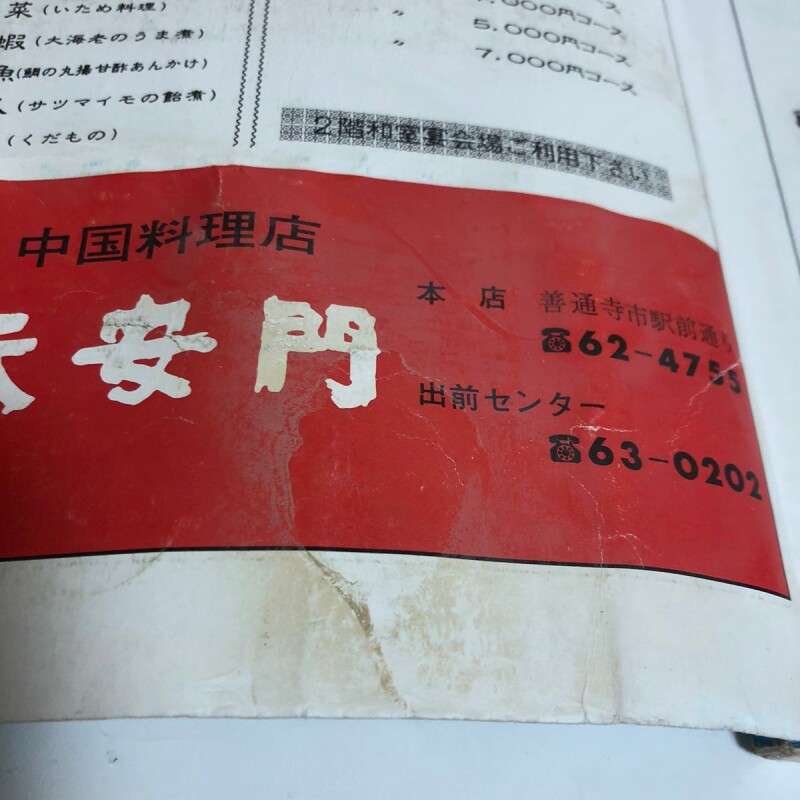 菜(いため料理)
蝦(大海老のうま煮)
魚(鯛の丸揚甘酢あんかけ)
(サツマイモの飴煮)
(くだもの)
〃 5.000円コース
〃 7.000円コース
2階和室宴会場ご利用下さい
中国料理店
安門
本店 善通寺市駅前通り
☎62-4755
出前センター
☎63-0202